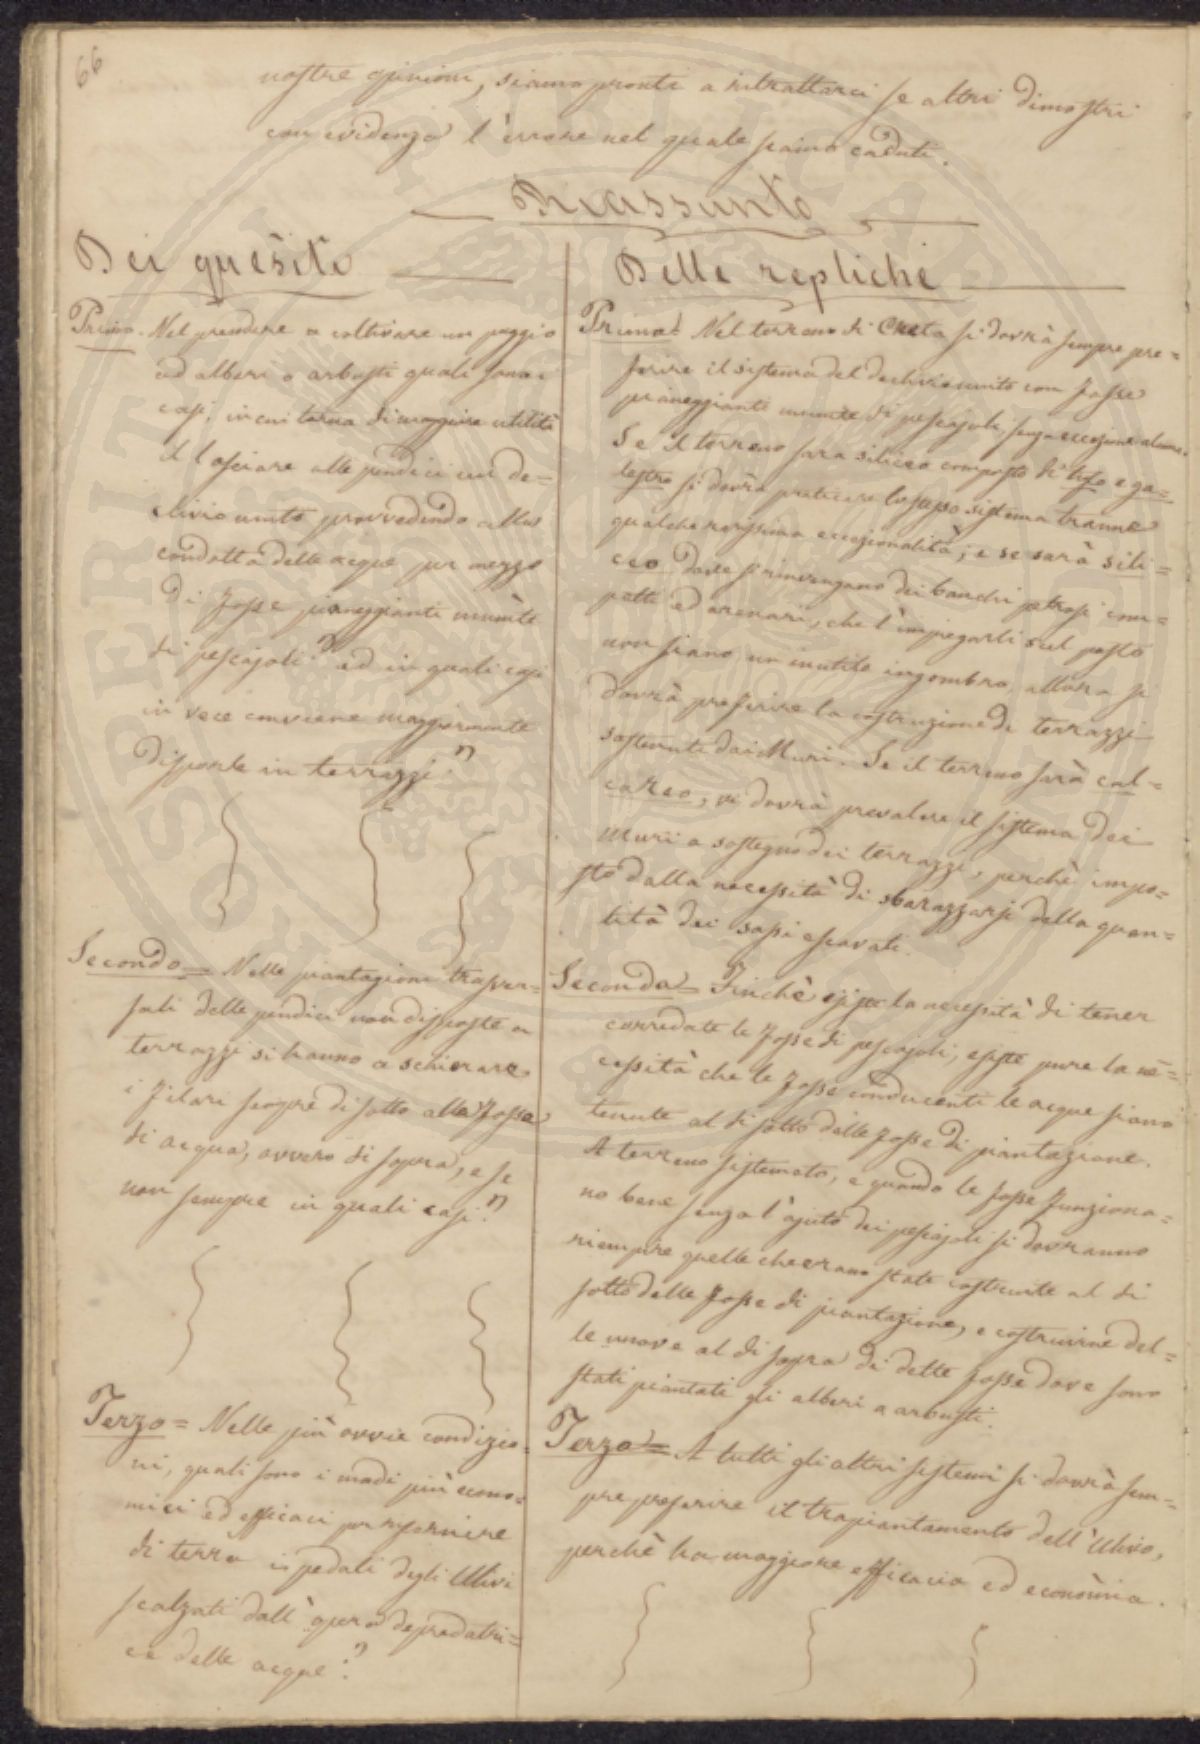 66
nostre opinioni, siamo pronti a ritrattarci se altri dimostri
con evidenza l'errore nel quale siamo caduti.
Riassunto
Dei quesiti
Primo. Nel prendere a coltivare un poggio
ad alberi o arbusti quali sono i
casi, in cui torna di maggiore utilità
il lasciare alle pendici un de=
clivio unito provvedendo alla
condotta delle acque per mezzo
di fosse pianeggianti munite
di pescajoli? ed in quali casi
in vece conviene maggiormente
disporle in terrazzi?
Secondo = Nelle piantagioni trasver=
sali delle pendici non disposte a
terrazzi si hanno a schierare
i filari sempre di sotto alle fosse
di acqua, ovvero di sopra, e se
non sempre in quali casi?
Terzo = Nelle più ovvie condizio=
ni, quali sono i modi più econo=
mici ed efficaci per rifornire
di terra i pedali degli Ulivi
scalzati dall'opera depredatri=
ce delle acque?
Delle repliche
Prima = Nel terreno di Creta si dovrà sempre pre=
ferire il sistema del declivio unito con fosse
pianeggianti munite di pescajoli, senza eccezione alcuna.
Se il terreno sarà siliceo composto di tufo e ga=
lestro si dovrà praticare lo stesso sistema tranne
qualche rarissima eccezionalità; e se sarà sili=
ceo dove si rinvengano dei banchi petrosi com=
patti ed arenari, che l'impiegarli sul posto
non siano un inutile ingombro, allora si
dovrà preferire la costruzione di terrazzi
sostenuti dai Muri. Se il terreno sarà cal=
careo, vi dovrà prevalere il sistema dei
muri a sostegno dei terrazzi, perchè impo=
sto dalla necessità di sbarazzarsi della quan=
tità dei sassi escavati.
Seconda = Finchè esiste la necessità di tener
corredate le fosse di pescajoli, esiste pure la ne=
cessità che le fosse conducenti le acque siano
tenute al di sotto delle fosse di piantazione.
A terreno sistemato, e quando le fosse funziona=
no bene senza l'ajuto dei pescajoli si dovranno
riempire quelle che erano state costruite al di
sotto delle fosse di piantazione, e costruirne del=
le nuove al di sopra di dette fosse dove sono
stati piantati gli alberi o arbusti.
Terza = A tutti gli altri sistemi si dovrà sem=
pre preferire il trapiantamento dell'Ulivo,
perchè ha maggiore efficacia ed economia.